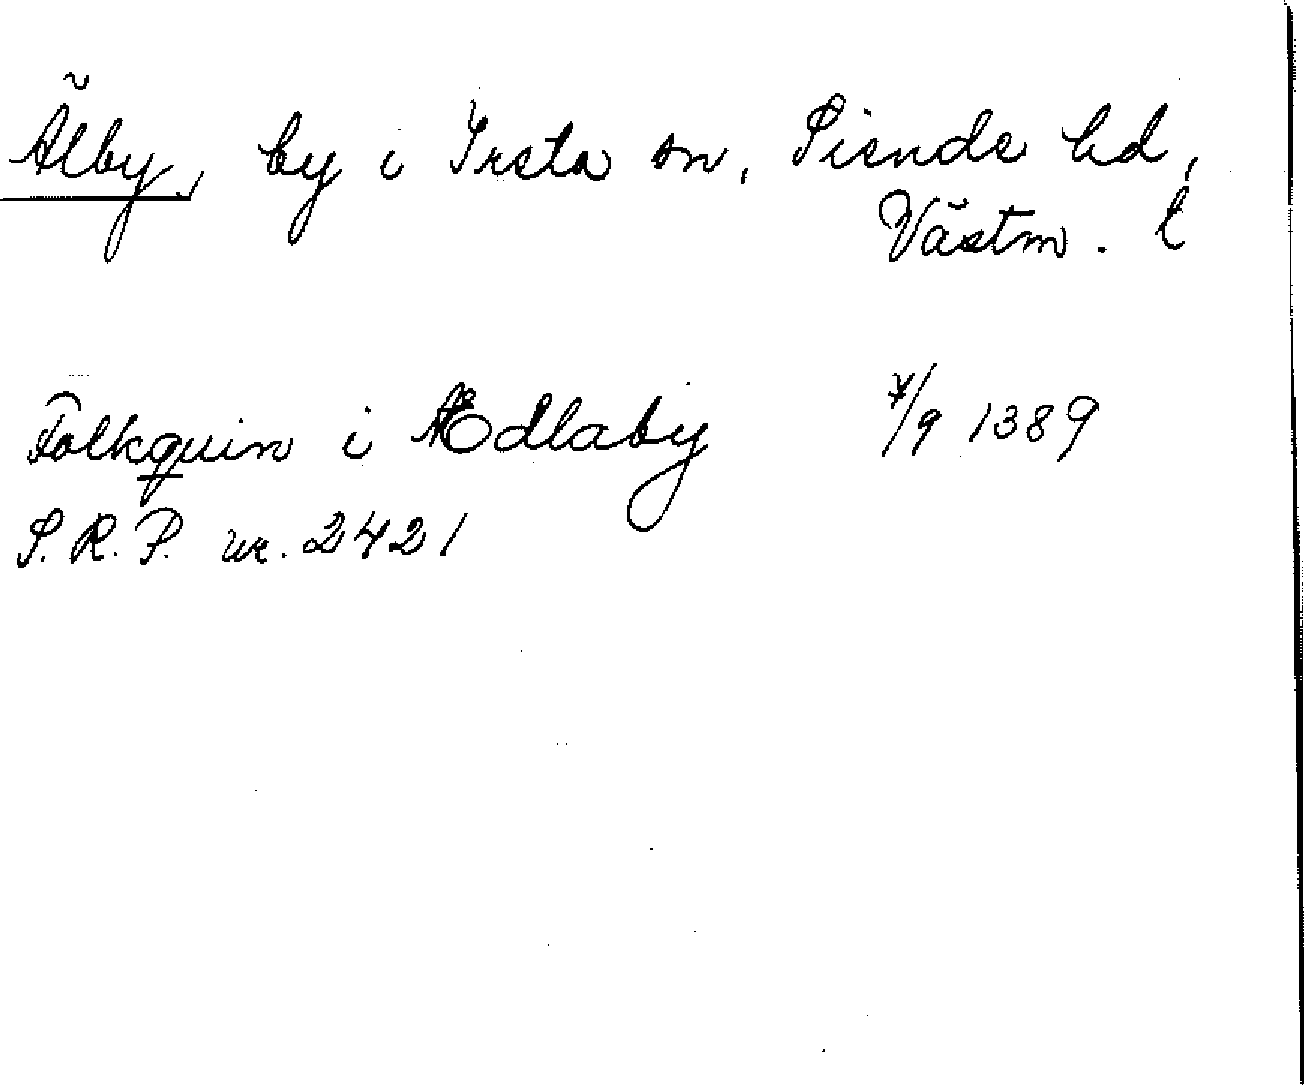 Älby, by i Irsta sn, Siende hd,
Västm. l
Folkquin i Ædlaby 7/9 1389
S.R.P. nr. 2421